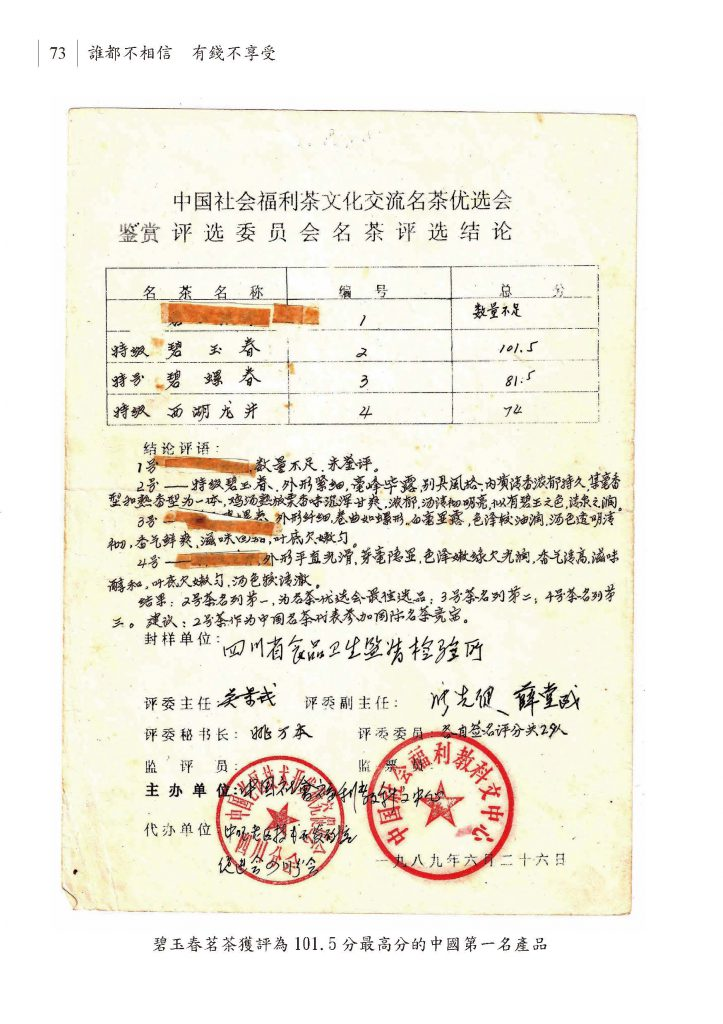 73 誰都不相信 有錢不享受
中国社会福利茶文化交流名茶优选会
鉴赏评选委员会名茶评选结论
名茶名称 编号 总分
1 数量不足
特级 碧玉春 2 101.5
特号 碧螺春 3 81.5
特级 西湖龙井 4 74
结论评语:
1号 数量不足、未鉴评。
2号——特级碧玉春、外形紧细,毫峰毕露,别具风格、内质清香浓郁持久,
型和熟香型为一体,鸡汤熟板栗香味沉浑甘爽、浓郁,汤清彻明亮,拟有碧玉之色,清泉之润。
3号——外形纤细,卷曲如螺形,白毫显露,色泽较油润,汤色透明清
彻,香气鲜爽,滋味 叶底欠嫩匀。
4号——外形平直光滑,芽毫隐显,色泽嫩绿欠光润,香气清高,滋味
醇和,叶底欠嫩匀,汤色较清澈。
结果:2号茶名列第一,为名茶优选会最佳选品;3号茶名列第二;4号茶名列第
三。建议:2号茶作为中国名茶代表参加国际名茶竞富。
封样单位:四川省食品卫生监督检验所
评委主任: 评委副主任:
评委秘书长:姚万本 评委委员:各自签名评分共29人
监评员: 监票员:
主办单位:中国社会福利教科文中心
代办单位:
四川分会
中国社会福利教科文中心
一九八九年六月二十六日
碧玉春茗茶獲評為101.5分最高分的中國第一名產品